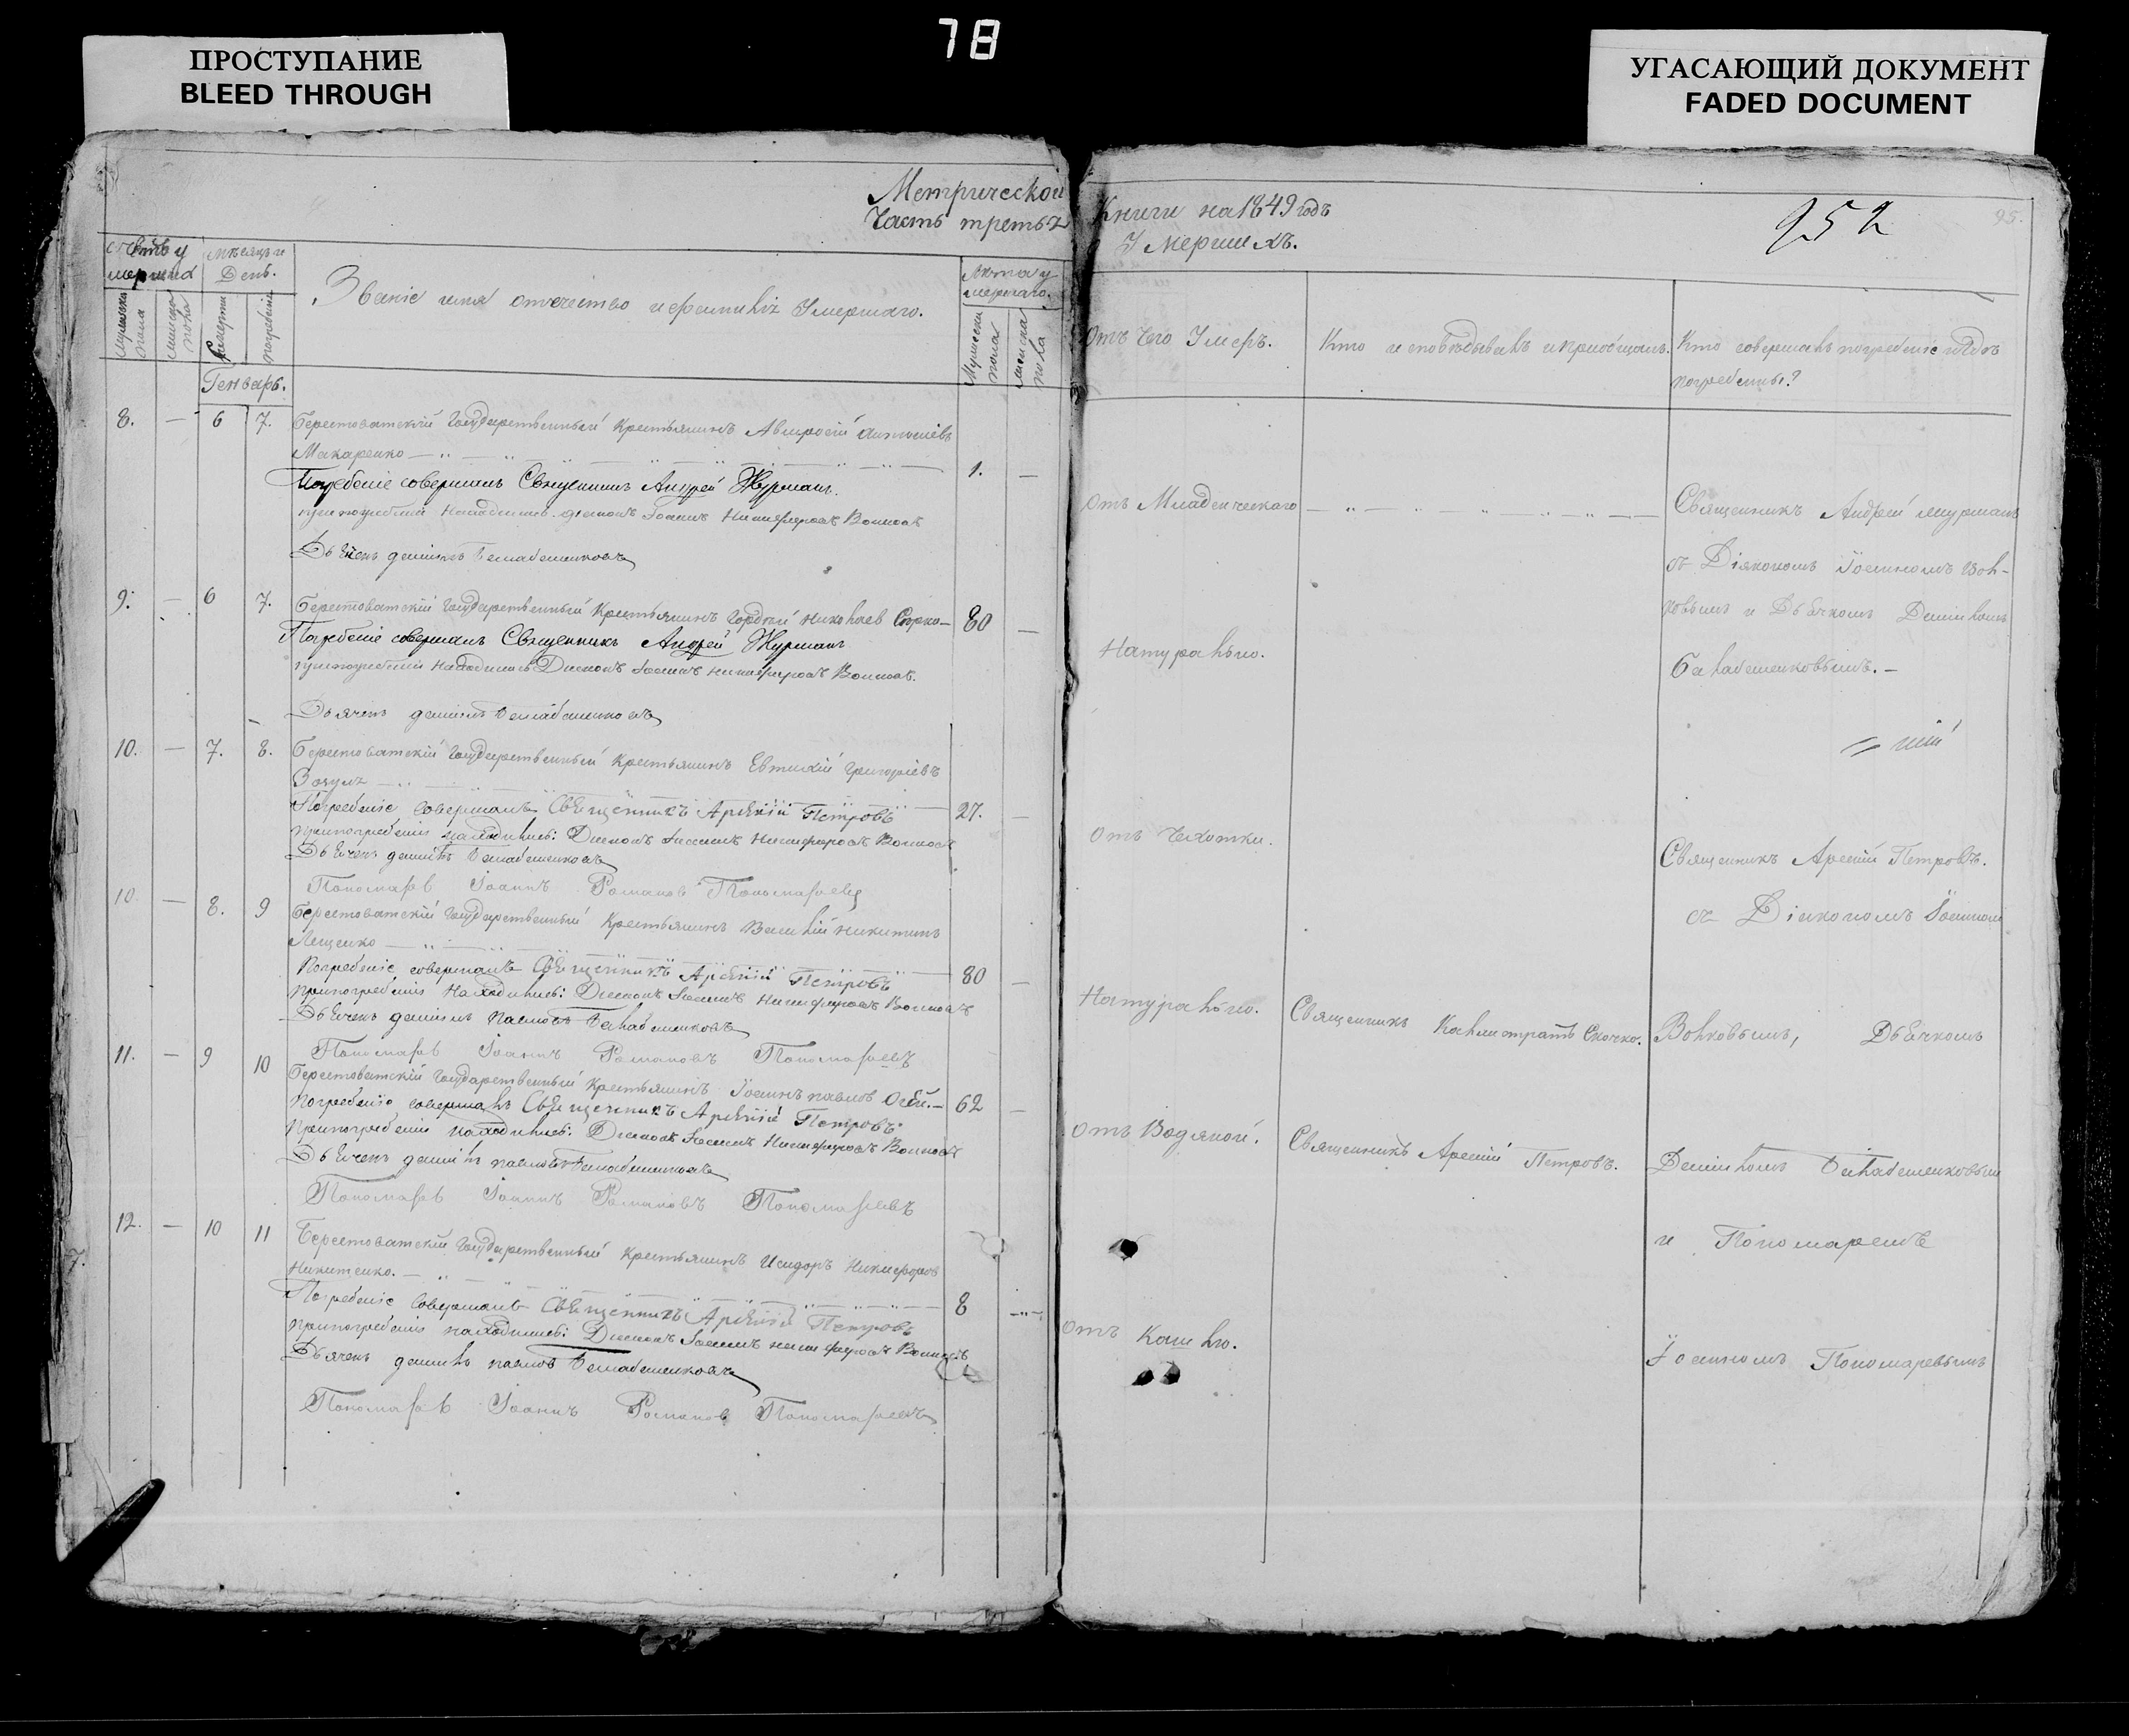 78
ПРОСТУПАНИЕ
BLEED THROUGH
УГАСАЮЩИЙ ДОКУМЕНТ
FADED DOCUMENT
Метрической
Часть третья
Книги на 1849 годъ
Умершихъ.
252
95.
Мѣсяцъ и
День.
Званіе имя отечество и фамилія Умершаго.
Лѣта у
мершаго.
Отъ чего Умеръ.
Кто исповѣдывалъ и пріобщалъ.
Кто совершалъ погребеніе и гдѣ
погребены?
Генварь.
8. — 6 7. Берестоватскій Государственный Крестьянинъ
Макаренко 1. —
Погребеніе совершалъ Священникъ Андрей Журманъ.
при погребеніи находились Діаконъ Іоаннъ Никифоровъ Волковъ
Дьячекъ Даніилъ Балабашенковъ
Отъ Младенческаго
Священникъ Андрей Журманъ
съ Діякономъ Іоанномъ Вол-
ковымъ и Дьячкомъ Даніиломъ
Балабашенковымъ.—
9. — 6 7. Берестоватскій Государственный Крестьянинъ Гордѣй Николаев 80 —
Погребеніе совершалъ Священникъ Андрей Журманъ
при погребеніи находились Діаконъ Іоаннъ Никифоровъ Волковъ.
Дьячекъ Даніилъ Балабашенковъ
Натурально.
10. — 7. 8. Берестоватскій Государственный Крестьянинъ Евтихій Григоріевъ
Зозуля 27. —
Погребеніе совершалъ Священникъ Арсеній Петровъ
при погребеніи находились: Діаконъ Іоаннъ Никифоровъ Волковъ
Дьячекъ Даніилъ Балабашенковъ
Пономарь Іоаннъ Романов Пономаревъ
Отъ Чахотки.
Священникъ Арсеній Петровъ.
съ Діякономъ Іоанномъ
10 — 8. 9 Берестоватскій Государственный Крестьянинъ Василій Никитинъ
Лещенко 80 —
Погребеніе совершалъ Священникъ Арсеній Петровъ
при погребеніи находились: Діаконъ Іоаннъ Никифоровъ Волковъ
Дьячекъ Даніилъ Павловъ Балабашенковъ
Пономарь Іоаннъ Романовъ Пономаревъ
Натурально.
Священникъ Калистратъ
Волковымъ, Дьячкомъ
11. — 9 10 Берестоватскій Государственный Крестьянинъ Іоаннъ Павлов 62 —
Погребеніе совершалъ Священникъ Арсеній Петровъ
При погребеніи находились: Діаконъ Іоаннъ Никифоровъ Волковъ
Дьячекъ Даніилъ Павловъ Балабашенковъ
Пономарь Іоаннъ Романовъ Пономаревъ
Отъ Водяной.
Священникъ Арсеній Петровъ.
Даніиломъ Балабашенковым
и Пономаремъ
12. — 10 11 Берестоватскій Государственный Крестьянинъ Исидоръ Никифоров
Никитенко. 8
Погребеніе совершалъ Священникъ Арсеній Петровъ
при погребеніи находились: Діаконъ Іоаннъ Никифоровъ Волковъ
Дьячекъ Даніилъ Павлов Балабашенковъ
Пономарь Іоаннъ Романов Пономаревъ
Отъ Кашлю.
Іоанномъ Пономаревымъ